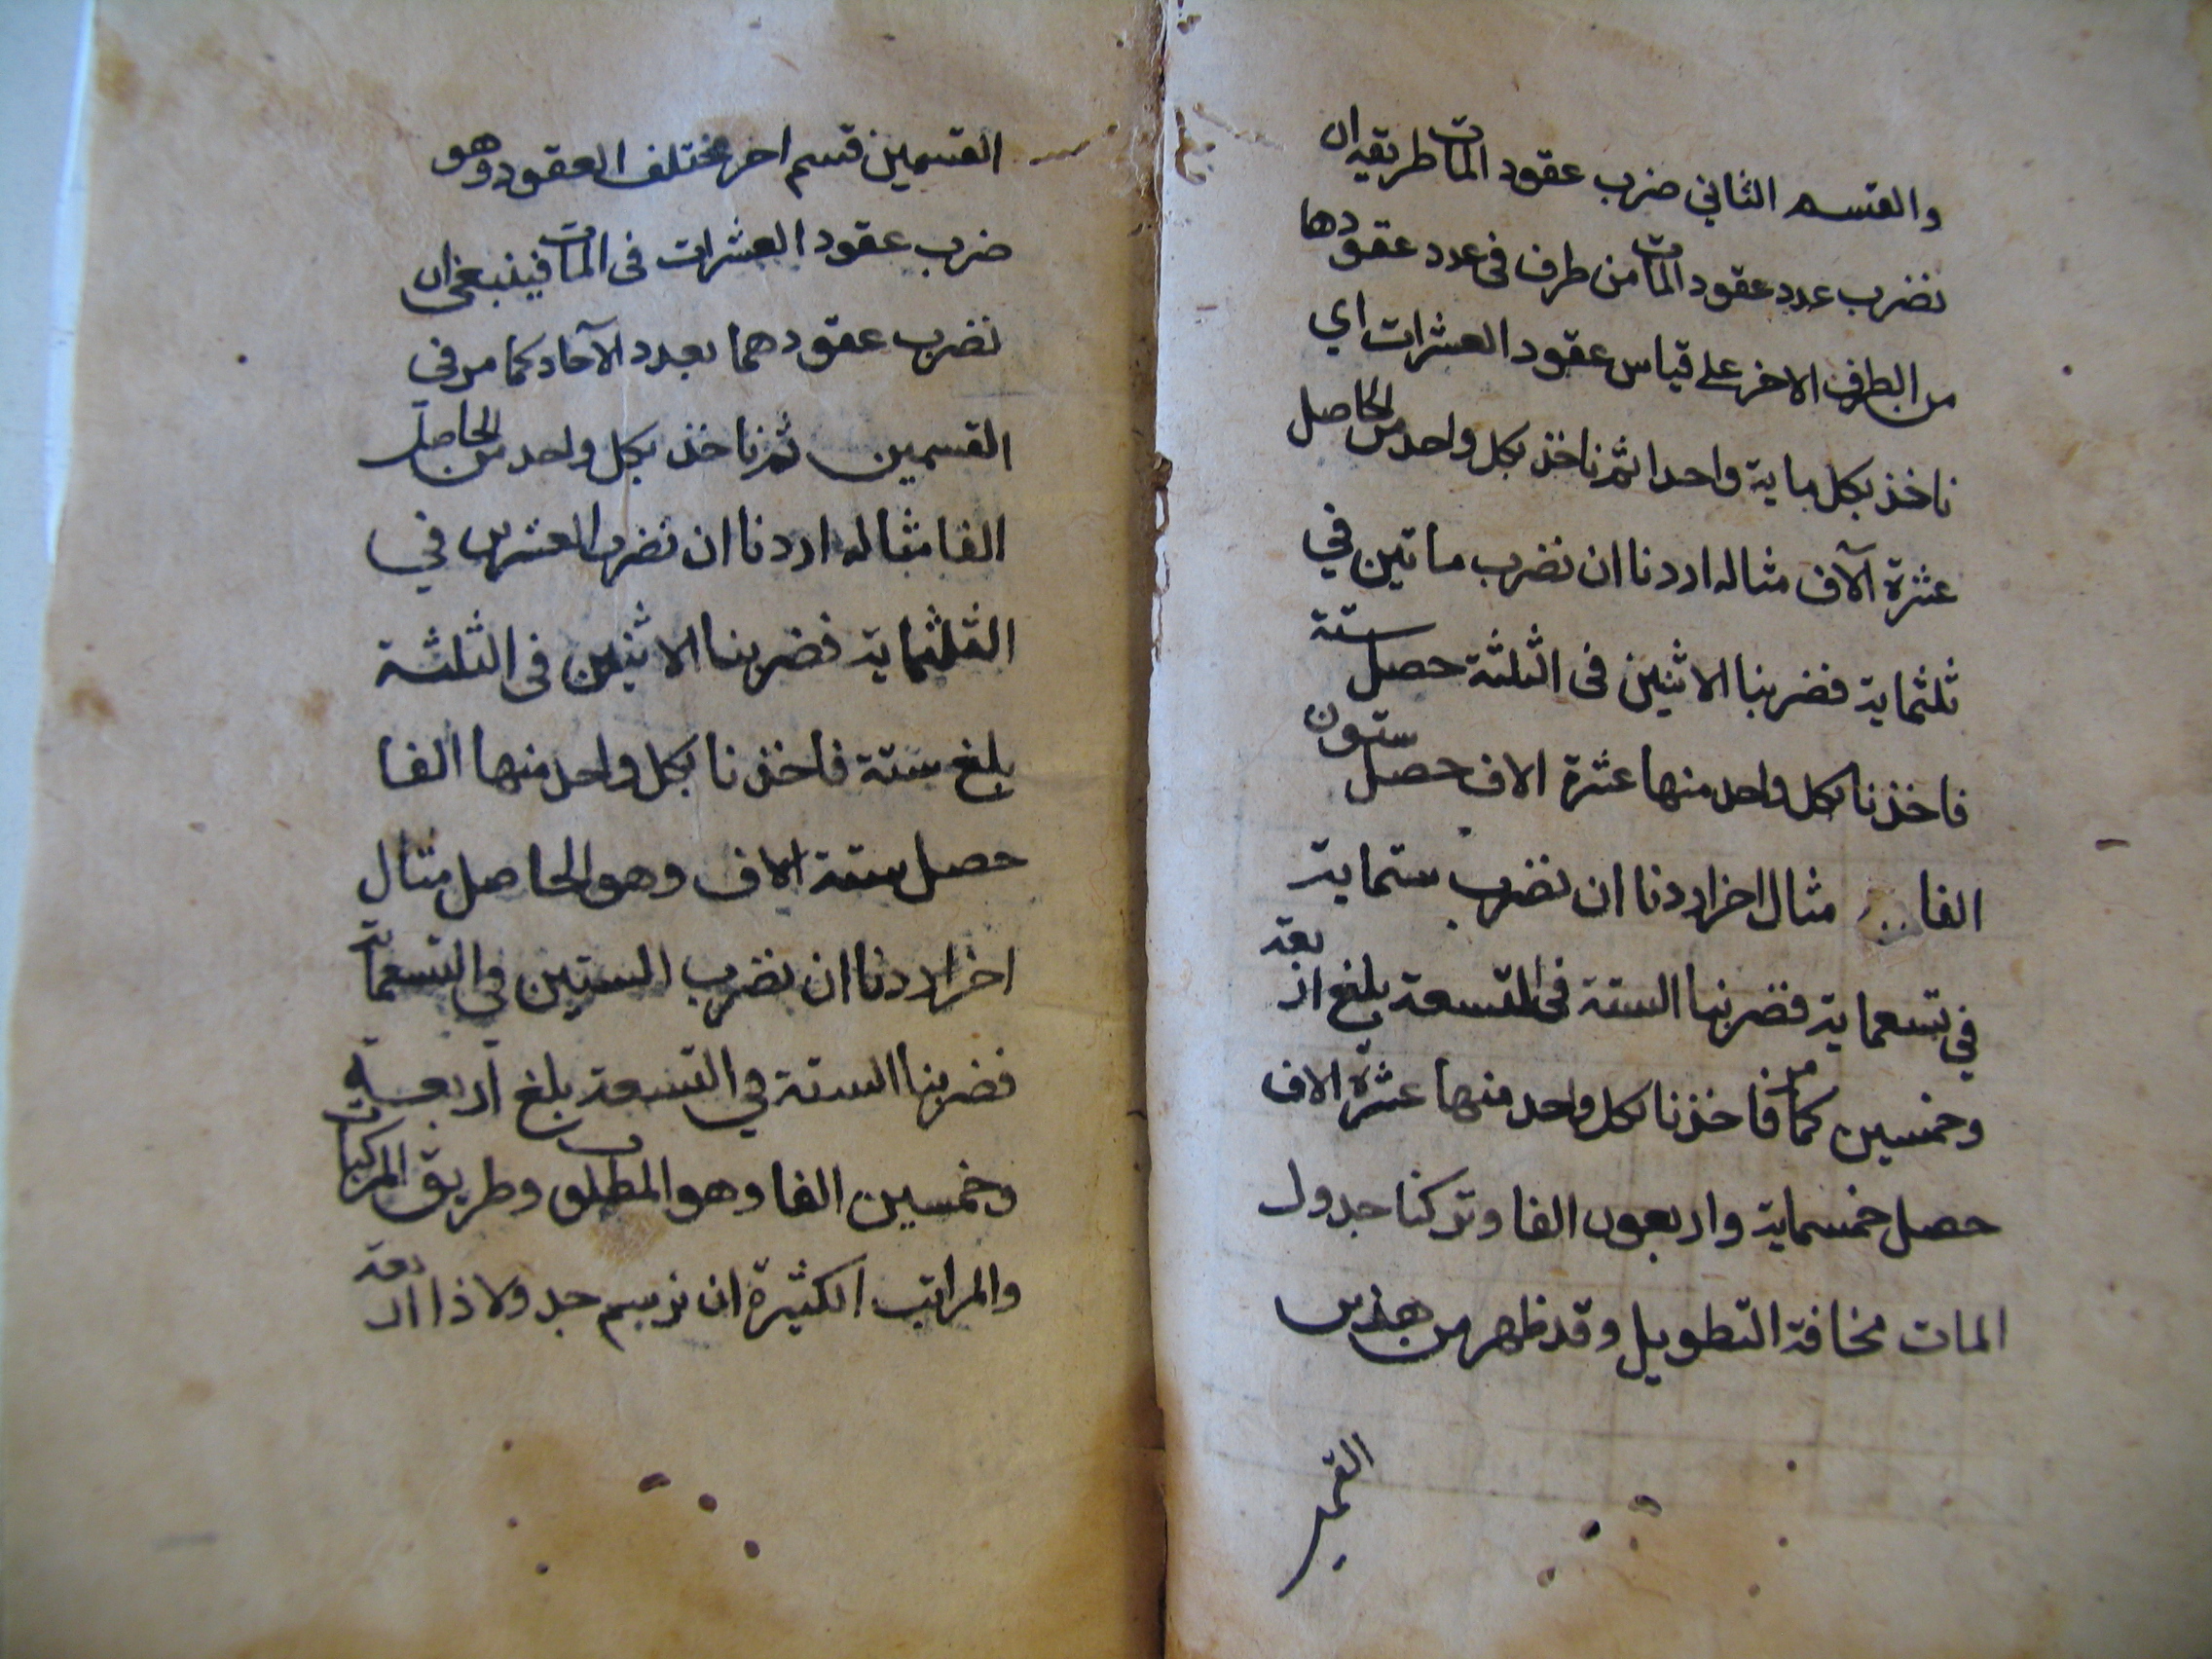 والقسم الثاني ضرب عقود المات طريقه ان
نضرب عدد عقود المات من طرف فى عدد عقودها
من الطرف الاخر على قياس عقود العشرات اي
ناخذ بكل ماية واحدا ثم ناخذ بكل واحد من الحاصل
عشرة آلاف مثاله اردنا ان نضرب ماتين في
ثلثماية فضربنا الاثنين فى الثلثة حصل ستة
فاخذنا بكل واحد منها عشرة الاف حصل ستون
الفا مثال اخر اردنا ان نضرب ستماية
في تسعماية فضربنا الستة فى التسعة بلغ اربعة
وخمسين كما مر فاخذنا بكل واحد منها عشرة الاف
حصل خمسماية واربعون الفا وتركنا جدول
المات مخافة التطويل وقد ظهر من هذين
القسمين قسم اخر مختلف العقود وهو
ضرب عقود العشرات فى المات فينبغى ان
نضرب عقودهما بعدد الآحاد كما مر في
القسمين ثم ناخذ بكل واحد من الحاصل
الفا مثاله اردنا ان نضرب العشرين في
الثلثماية فضربنا الاثنين فى الثلثة
بلغ ستة فاخذنا بكل واحد منها الفا
حصل ستة الاف وهو الحاصل مثال
اخر اردنا ان نضرب الستين في التسعماية
فضربنا الستة في التسعة بلغ اربعة
وخمسين الفا وهو المطلوب وطريق المركبات
والمراتب الكثيرة ان نرسم جدولا ذا اربعة